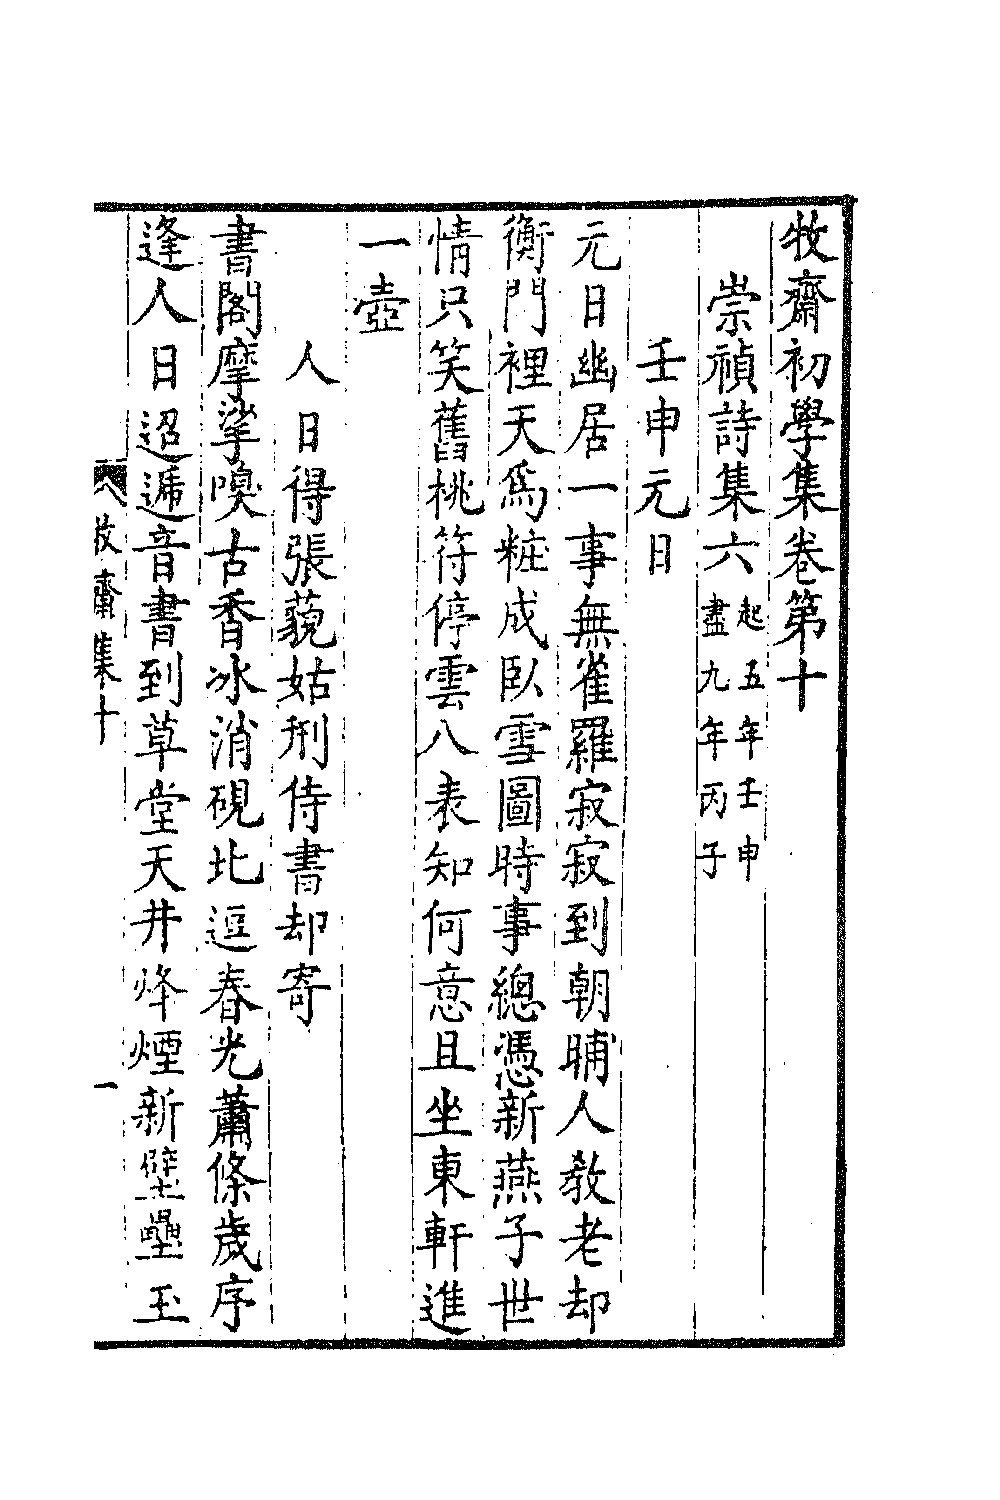 牧齋初學集卷第十
崇禎詩集六起五年壬申盡九年丙子
壬申元日
元日幽居一事無雀羅寂寂到朝晡人教老却
衡門裡天爲粧成臥雪圖時事總憑新燕子世
情只笑舊桃符停雲八表知何意且坐東軒進
一壺
人日得張藐姑刑侍書却寄
書閣摩挲喚古香冰消硯北逗春光蕭條歲序
逢人日迢遞音書到草堂天井烽煙新壁壘玉
牧齋集十
一